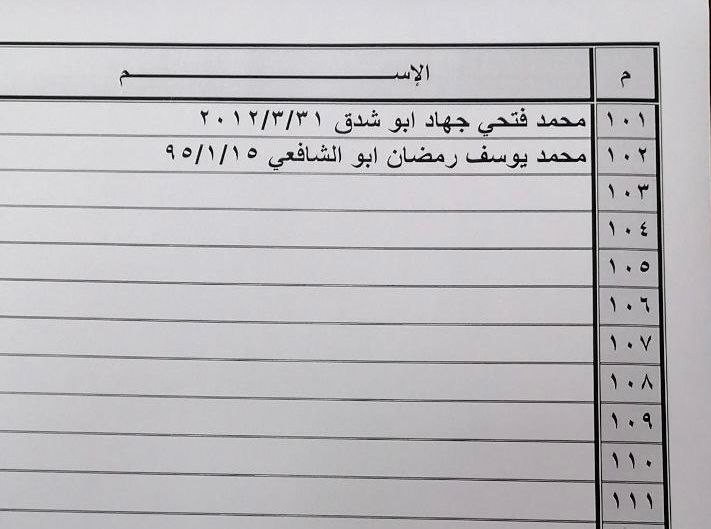 م الإســـــــــــــــــــــــــــــــم
١٠١ محمد فتحي جهاد ابو شدق ٢٠١٢/٣/٣١
١٠٢ محمد يوسف رمضان ابو الشافعي ٩٥/١/١٥
١٠٣
١٠٤
١٠٥
١٠٦
١٠٧
١٠٨
١٠٩
١١٠
١١١